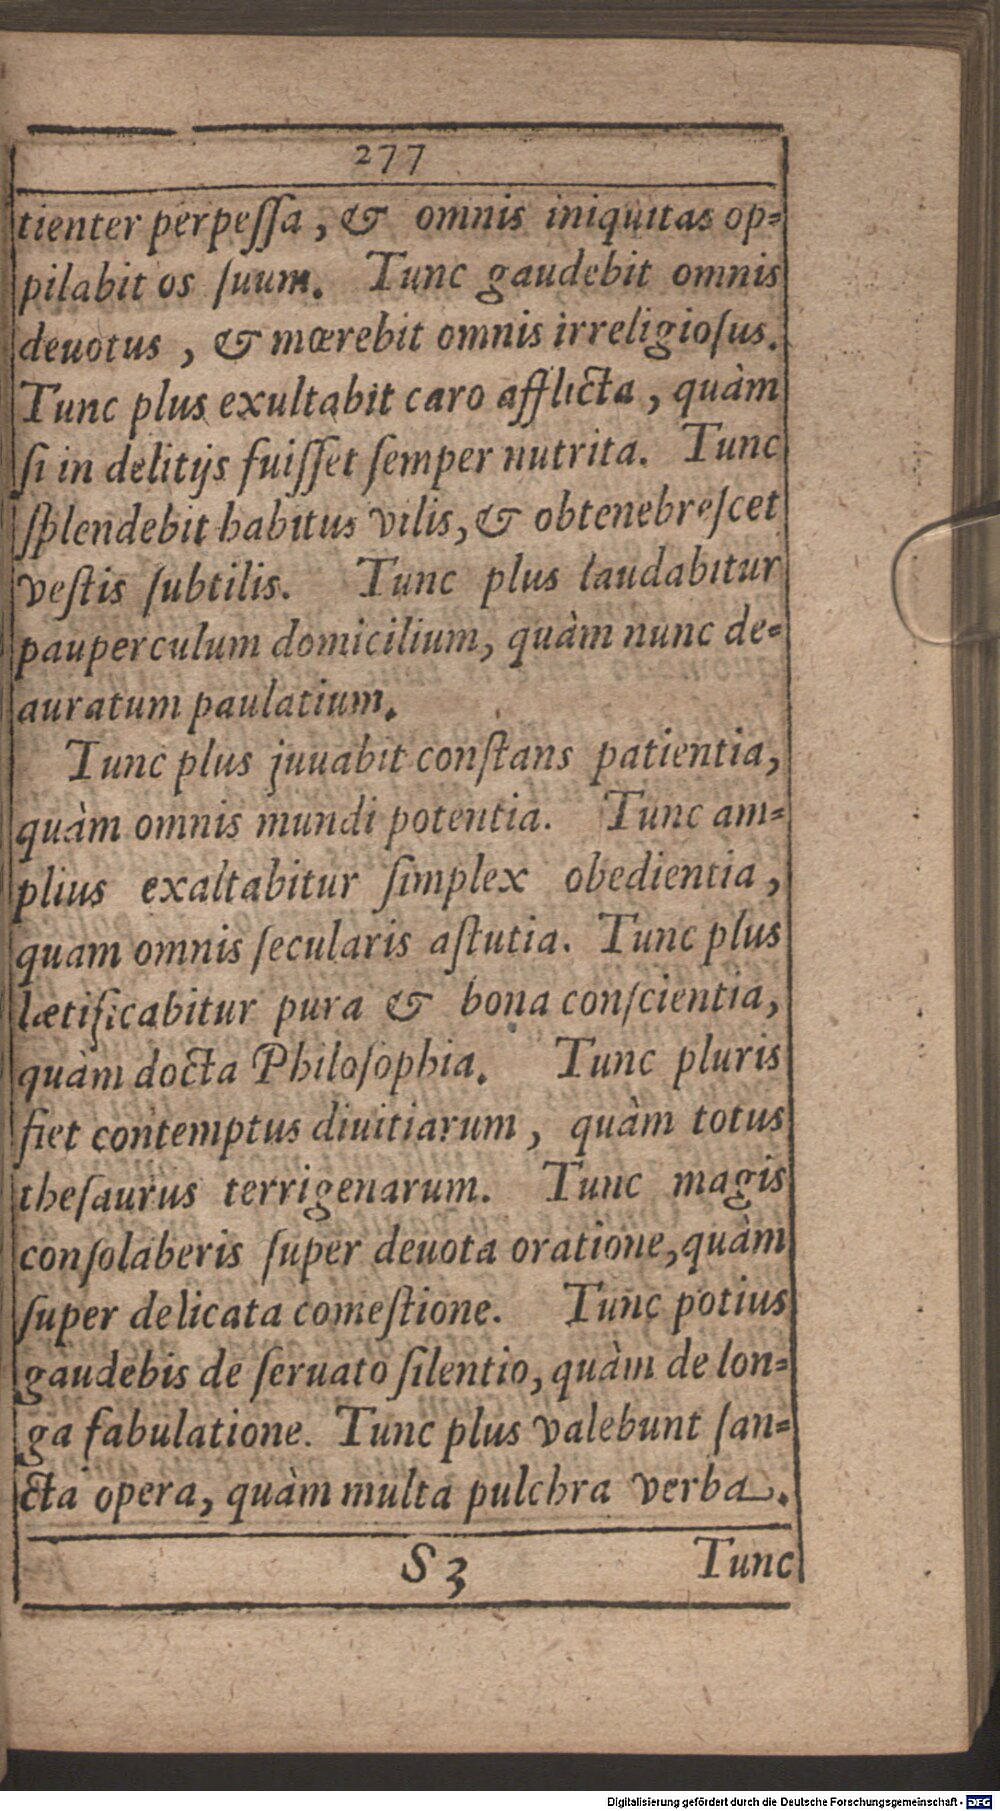 277
tienter perpeſſa, & omnis iniquitas op-
pilabit os ſuum. Tunc gaudebit omnis
deuotus, & mœrebit omnis irreligioſus.
Tunc plus exultabit caro afflicta, quàm
ſi in delitijs fuiſſet ſemper nutrita. Tunc
ſplendebit habitus vilis, & obtenebreſcet
veſtis ſubtilis. Tunc plus laudabitur
pauperculum domicilium, quàm nunc de-
auratum paulatium.
Tunc plus juuabit conſtans patientia,
quàm omnis mundi potentia. Tunc am-
plius exaltabitur ſimplex obedientia,
quam omnis ſecularis aſtutia. Tunc plus
lætificabitur pura & bona conſcientia,
quàm docta Philoſophia. Tunc pluris
fiet contemptus diuitiarum, quàm totus
theſaurus terrigenarum. Tunc magis
conſolaberis ſuper deuota oratione, quàm
ſuper delicata comeſtione. Tunc potius
gaudebis de ſeruato ſilentio, quàm de lon-
ga fabulatione. Tunc plus valebunt ſan-
cta opera, quàm multa pulchra verba.
S 3 Tunc
Digitalisierung gefördert durch die Deutsche Forschungsgemeinschaft - DFG